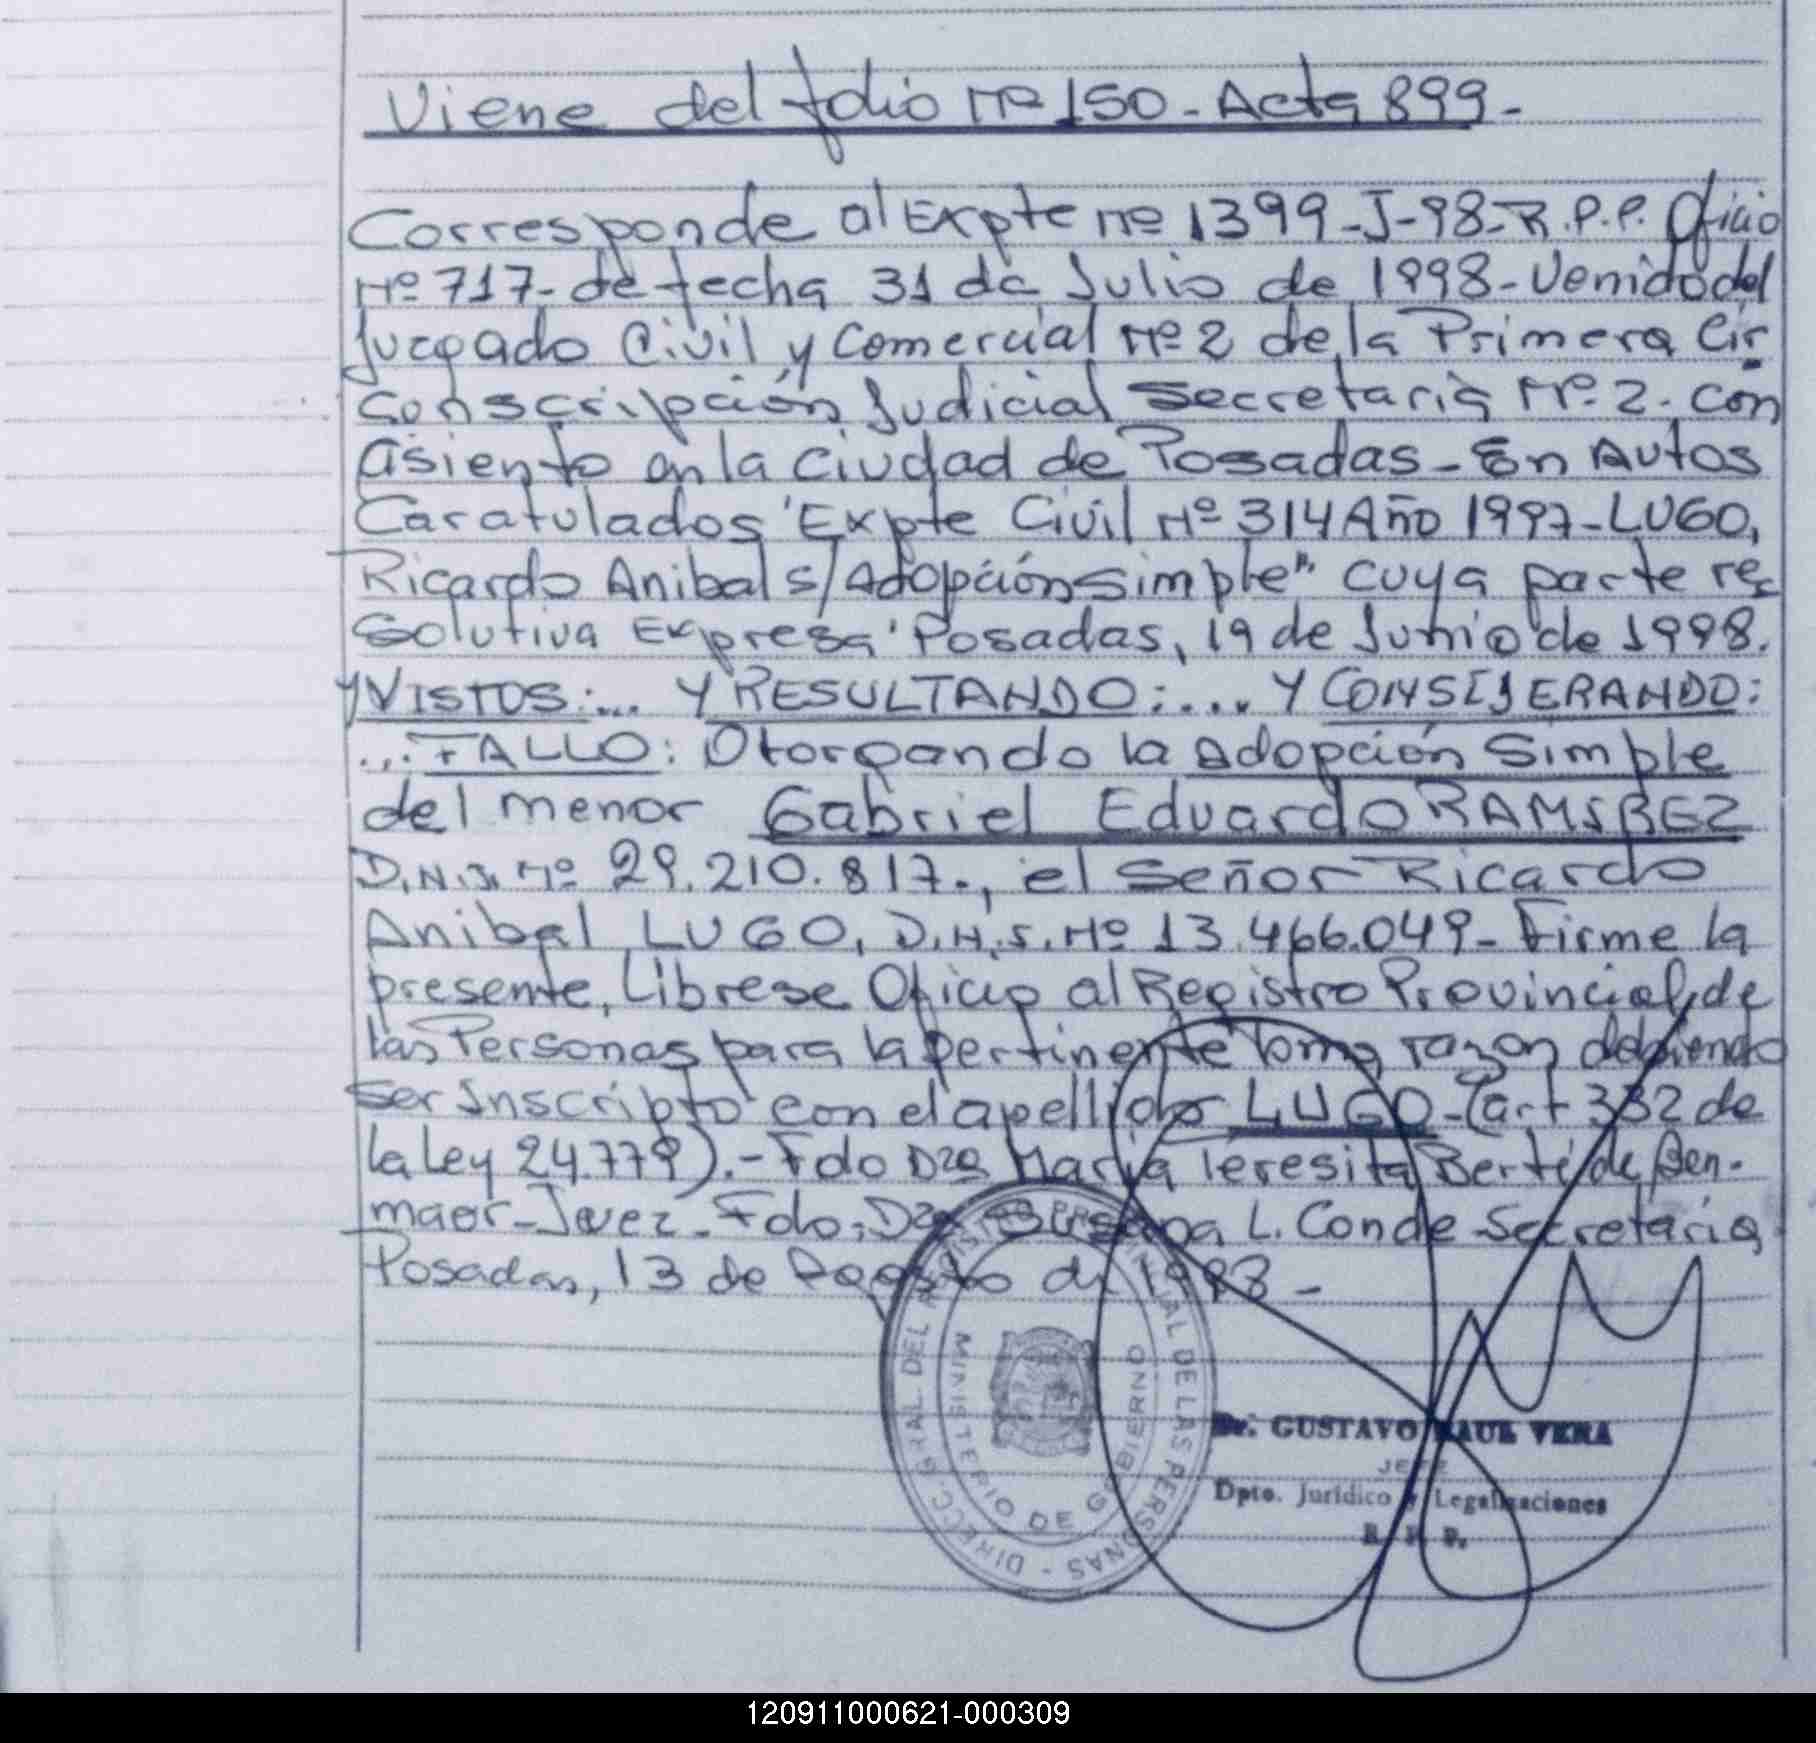 Viene del folio Nº 150 - Acta 899 -
Corresponde al Expte nº 1399-J-98-R.P.P. Oficio
Nº 717- de fecha 31 de Julio de 1998 - Venido del
Juzgado Civil y Comercial Nº 2 de la Primera Cir
conscripción Judicial Secretaria Nº 2. con
asiento en la Ciudad de Posadas - En Autos
Caratulados "Expte Civil Nº 314 Año 1997 - LUGO,
Ricardo Anibal s/Adopción Simple" cuya parte re
solutiva Expresa "Posadas, 19 de Junio de 1998.
Y VISTOS:... Y RESULTANDO:.... Y CONSIDERANDO:
...FALLO: Otorgando la adopción Simple
del menor Gabriel Eduardo RAMIREZ
D.N.I. Nº 29.210.817., el Señor Ricardo
Anibal LUGO, D.N.I. Nº 13.466.049 - Firme la
presente, Librese Oficio al Registro Provincial de
las Personas para la pertinente toma razon debiendo
ser Inscripto con el apellido LUGO - (art 332 de
la Ley 24.779).- Fdo Dra Maria Teresita Berté de Ben-
maor - Juez - Fdo. Dra Susana L. Conde Secretaria
Posadas, 13 de Agosto de 1998 -
DIRECC. GRAL. DEL REGISTRO PROVINCIAL DE LAS PERSONAS -
MINISTERIO DE GOBIERNO
Dr. GUSTAVO RAUL VERA
JEFE
Dpto. Jurídico y Legalizaciones
R. P. P.
120911000621-000309